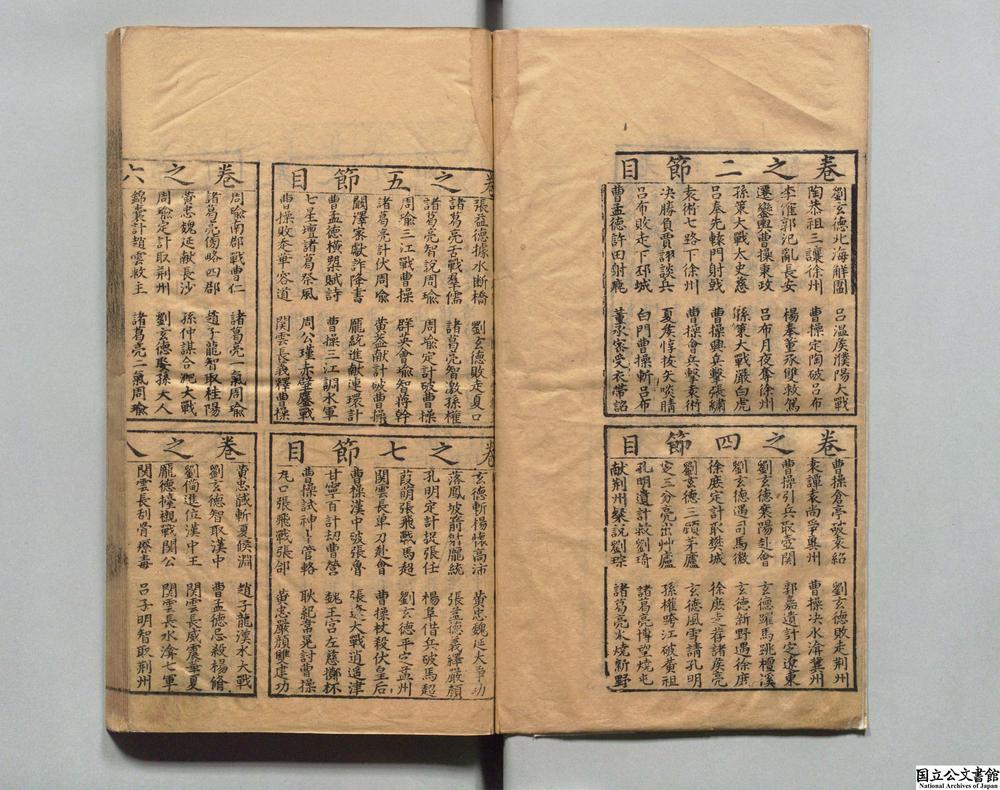 卷之二節目
劉玄德北海解圍 吕温矦濮陽大戰
陶恭祖三讓徐州 曹操定陶破吕布
李傕郭汜亂長安 楊奉董承雙救駕
遷鑾輿曹操秉政 吕布月夜奪徐州
孫策大戰太史慈 孫策大戰嚴白虎
吕奉先轅門射戟 曹操興兵擊張繡
袁術七路下徐州 曹操會兵擊袁術
决勝負賈詡談兵 夏矦惇拔矢啖睛
吕布敗走下邳城 白門曹操斬吕布
曹孟德許田射鹿 董承密受衣帶詔
卷之四節目
曹操倉亭破袁紹 劉玄德敗走荆州
袁譚袁尚爭冀州 曹操决水渰冀州
曹操引兵取壺関 郭嘉遺計定遼東
劉玄德襄陽赴會 玄德躍馬跳檀溪
劉玄德遇司馬徽 玄德新野遇徐庶
徐庶定計取樊城 徐庶走荐諸葛亮
劉玄德三顧茅廬 玄德風雪請孔明
定三分亮出茅廬 孫權跨江破黃祖
孔明遺計救劉琦 諸葛亮博望燒屯
献荆州粲說劉琮 諸葛亮火燒新野
卷之五節目
張益德據水断橋 劉玄德敗走夏口
諸葛亮舌戰羣儒 諸葛亮智激孫權
諸葛亮智說周瑜 周瑜定計破曹操
周瑜三江戰曹操 群英會瑜智蔣幹
諸葛亮計伏周瑜 黃蓋献計破曹操
闞澤宻獻許降書 龐統進献連環計
曹孟德橫槊賦詩 曹操三江調水軍
七星壇諸葛祭風 周公瑾赤壁鏖戰
曹操敗走華容道 関雲長義釋曹操
卷之六
周瑜南郡戰曹仁 諸葛亮一氣周瑜
諸葛亮傍略四郡 趙子龍智取桂陽
黃忠魏延献長沙 孫仲謀合淝大戰
周瑜定計取荆州 劉玄德娶孫夫人
錦囊計趙雲救主 諸葛亮二氣周瑜
卷之七節目
玄德斬楊懷高沛 黃忠魏延大爭功
落鳳坡箭射龐統 張益德義釋嚴顔
孔明定計捉張任 楊阜借兵破馬超
葭萌張飛戰馬超 劉玄德平定益州
関雲長单刀赴會 曹操杖殺伏皇后
曹操漢中破張魯 張遼大戰逍遥津
甘寧百計刼曹營 魏王宫左慈擲杯
曹操試神卜管輅 耿紀韋晃討曹操
瓦口張飛戰張郃 黃忠嚴顔雙建功
卷之八
黃忠馘斬夏候淵 趙子龍漢水大戰
劉玄德智取漢中 曹孟德忌殺楊脩
劉備進位漢中王 関雲長威震華夏
龐德擡櫬戰関公 関雲長水渰七軍
関雲長刮骨療毒 吕子明智取荆州
国立公文書館
National Archives of Japan